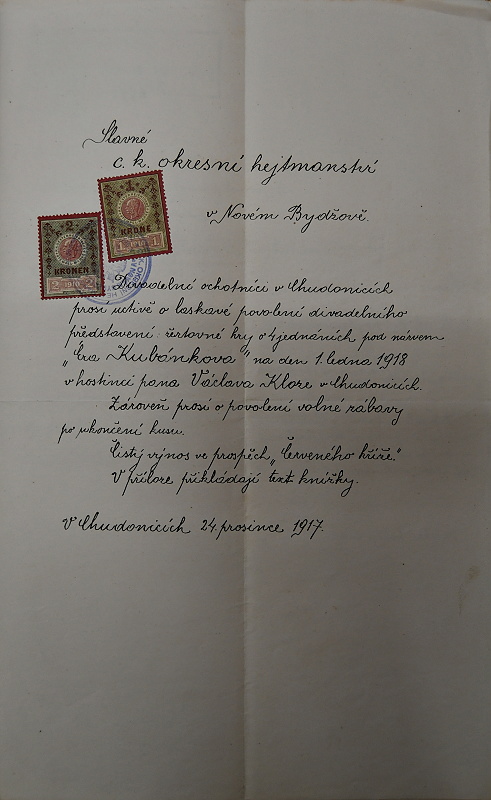 Slavné
c. k. okresní hejtmanství
v Novém Bydžově.
1
KRONE
1 1910 1
2
KRONEN
2 1910 2
Divadelní ochotníci v Chudonicích
prosí uctivě o laskavé povolení divadelního
představení: žertovné hry o 4 jednáních pod názvem
„Eva Kubánkova" na den 1. ledna 1918
v hostinci pana Václava Klose v Chudonicích.
Zároveň prosí o povolení volné zábavy
po ukončení kusu.
Čistý výnos ve prospěch „Červeného kříže."
V příloze přikládají text knížky.
V Chudonicích 24. prosince 1917.